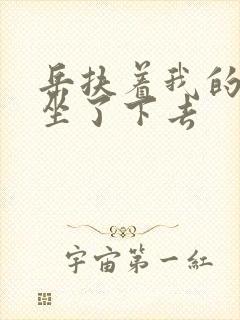 岳扶着我的
坐了下去
宇宙第一紅